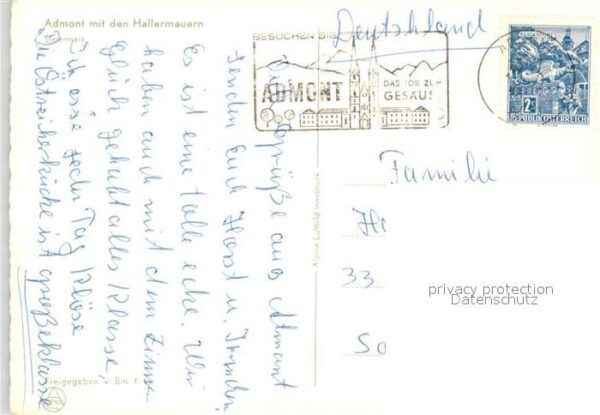 Admont mit den Hallermauern
Steiermark
Deutschland
BESUCHEN SIE
ADMONT
DAS TOR ZUM
GESÄUSE
2S
REPUBLIK ÖSTERREICH
Grüße aus Admont
senden Euch Horst u.
Es ist eine tolle ecke. Wir
haben auch mit dem Zimmer
Glück gehabt alles Klasse.
Ich esse jeden Tag Klöse
Die Östreicherküche ist großeklasse
Alpine Luftbild Innsbruck
Freigegeben v. Bm. f.
Familie
H
33
So
privacy protection
Datenschutz